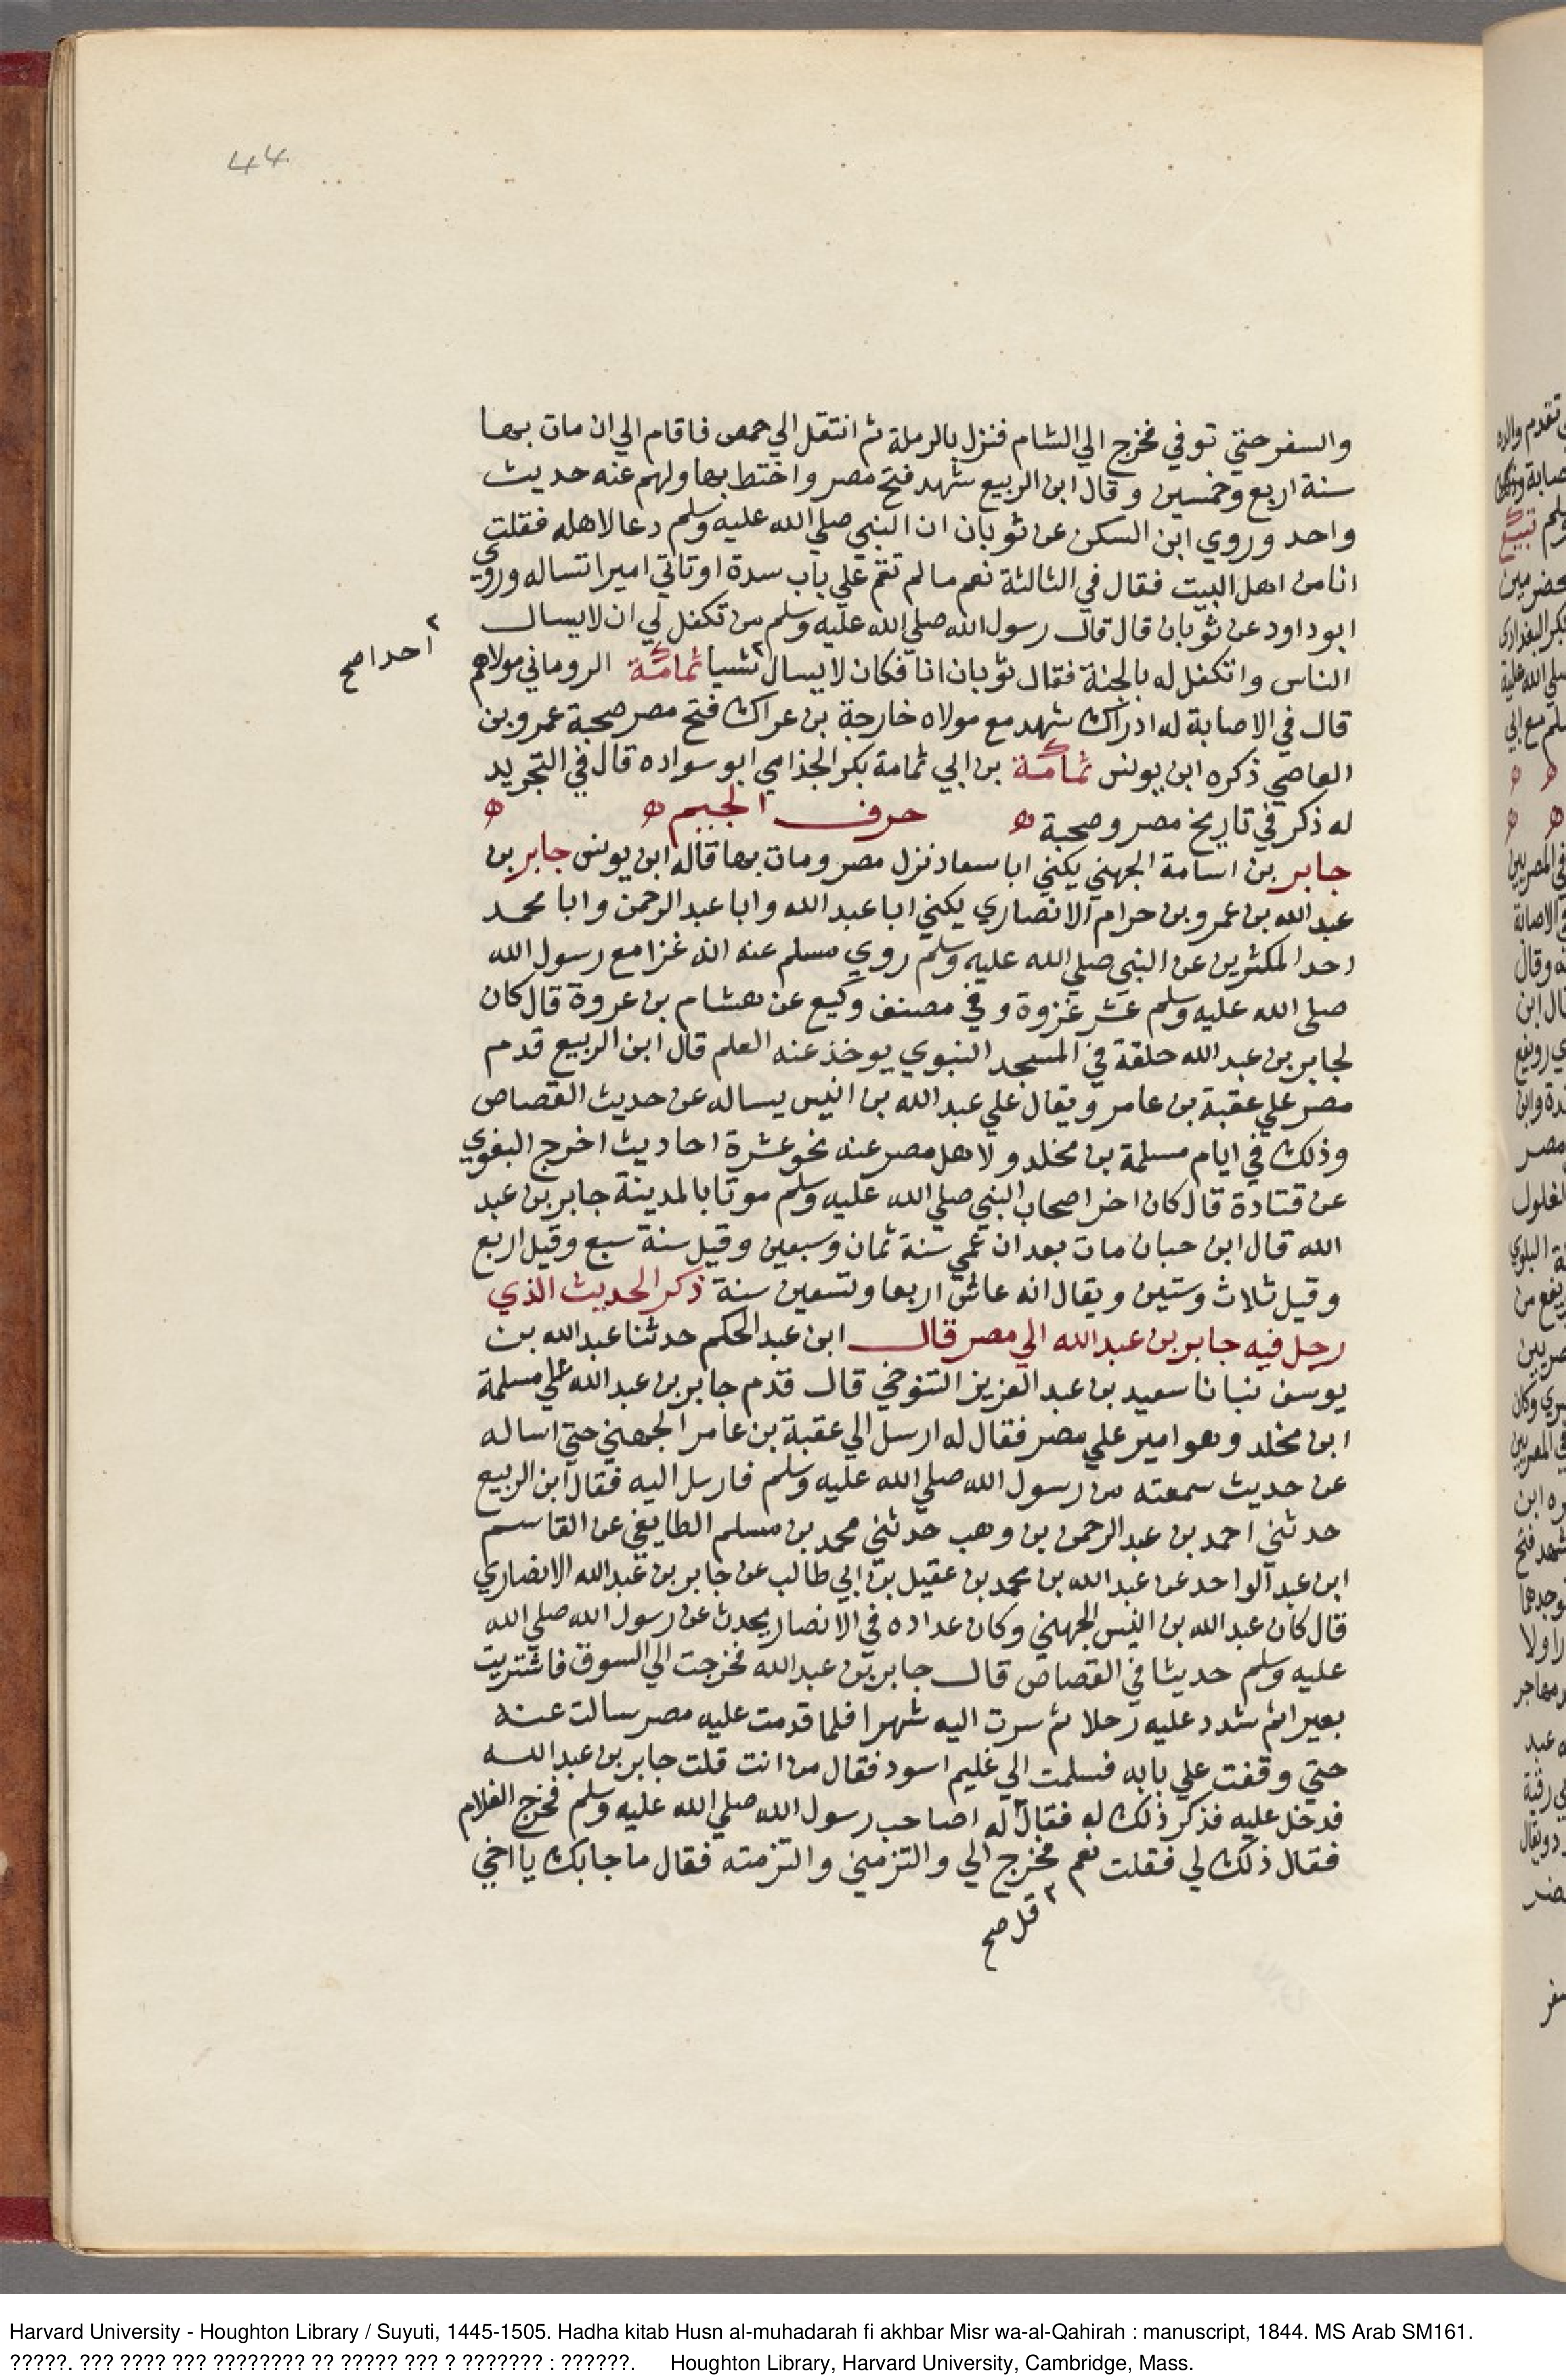 44
والسفر حتي توفي فخرج الي الشام فنزل بالرملة ثم انتقل الي حمص فاقام الي ان مات بها
سنة اربع وخمسين وقال ابن الربيع شهد فتح مصر واختط بها ولهم عنه حديث
واحد وروي ابن السكن عن ثوبان ان النبي صلي الله عليه وسلم دعا لاهله فقلت
انا من اهل البيت فقال في الثالثة نعم ما لم تقم علي باب سدة او تاتي اميرا تساله وروي
ابو داود عن ثوبان قال قال رسول الله صلي الله عليه وسلم من تكفل لي ان لا يسال
الناس واتكفل له بالجنة فقال ثوبان انا فكان لا يسال ٢ شيا ثمامة الروماني مولاهم
٢ احدا صح
قال في الاصابة له ادراك شهد مع مولاه خارجة بن عراك فتح مصر صحبة عمرو بن
العاصي ذكره ابن يونس ثمامة بن ابي ثمامة بكر الجذامي ابو سواده قال في التجريد
له ذكر في تاريخ مصر وصحبة ه حرف الجيم ه ه
جابر بن اسامة الجهني يكني ابا سعاد نزل مصر ومات بها قاله ابن يونس جابر بن
عبد الله بن عمرو بن حرام الانصاري يكني ابا عبد الله وابا عبد الرحمن وابا محمد
احد المكثرين عن النبي صلي الله عليه وسلم روي مسلم عنه انه غزا مع رسول الله
صلي الله عليه وسلم عشر غزوة وفي مصنف وكيع عن هشام بن عروة قال كان
لجابر بن عبد الله حلقة في المسجد النبوي يوخذ عنه العلم قال ابن الربيع قدم
مصر علي عقبة بن عامر ويقال علي عبد الله بن انيس يساله عن حديث القصاص
وذلك في ايام مسلمة بن مخلد ولاهل مصر عنه نحو عشرة احاديث اخرج البغوي
عن قتادة قال كان اخر اصحاب النبي صلي الله عليه وسلم موتا بالمدينة جابر بن عبد
الله قال ابن حبان مات بعد ان عمي سنة ثمان وسبعين وقيل سنة سبع وقيل اربع
وقيل ثلاث وستين ويقال انه عاش اربعا وتسعين سنة ذكر الحديث الذي
رحل فيه جابر بن عبد الله الي مصر قال ابن عبد الحكم حدثنا عبد الله بن
يوسف نبانا سعيد بن عبد العزيز التنوخي قال قدم جابر بن عبد الله علي مسلمة
ابن مخلد وهو امير علي مصر فقال له ارسل الي عقبة بن عامر الجهني حتي اساله
عن حديث سمعته من رسول الله صلي الله عليه وسلم فارسل اليه فقال ابن الربيع
حدثني احمد بن عبد الرحمن بن وهب حدثني محمد بن مسلم الطايفي عن القاسم
ابن عبد الواحد عن عبد الله بن محمد بن عقيل بن ابي طالب عن جابر بن عبد الله الانصاري
قال كان عبد الله بن انيس الجهني وكان عداده في الانصار يحدث عن رسول الله صلي الله
عليه وسلم حديثا في القصاص قال جابر بن عبد الله فخرجت الي السوق فاشتريت
بعيرا ثم شدد عليه رحلا ثم سرت اليه شهرا فلما قدمت عليه مصر سالت عنه
حتي وقفت علي بابه فسلمت الي غليم اسود فقال من انت قلت جابر بن عبد الله
فدخل عليه فذكر ذلك له فقال ٢ له اصاحب رسول الله صلي الله عليه وسلم فخرج الغلام
فقال ذلك لي فقلت نعم فخرج الي والتزمني والتزمته فقال ما جا بك يا اخي
٢ قل صح
Harvard University - Houghton Library / Suyuti, 1445-1505. Hadha kitab Husn al-muhadarah fi akhbar Misr wa-al-Qahirah : manuscript, 1844. MS Arab SM161.
?????. ??? ???? ??? ???????? ?? ????? ??? ? ??????? : ??????. Houghton Library, Harvard University, Cambridge, Mass.